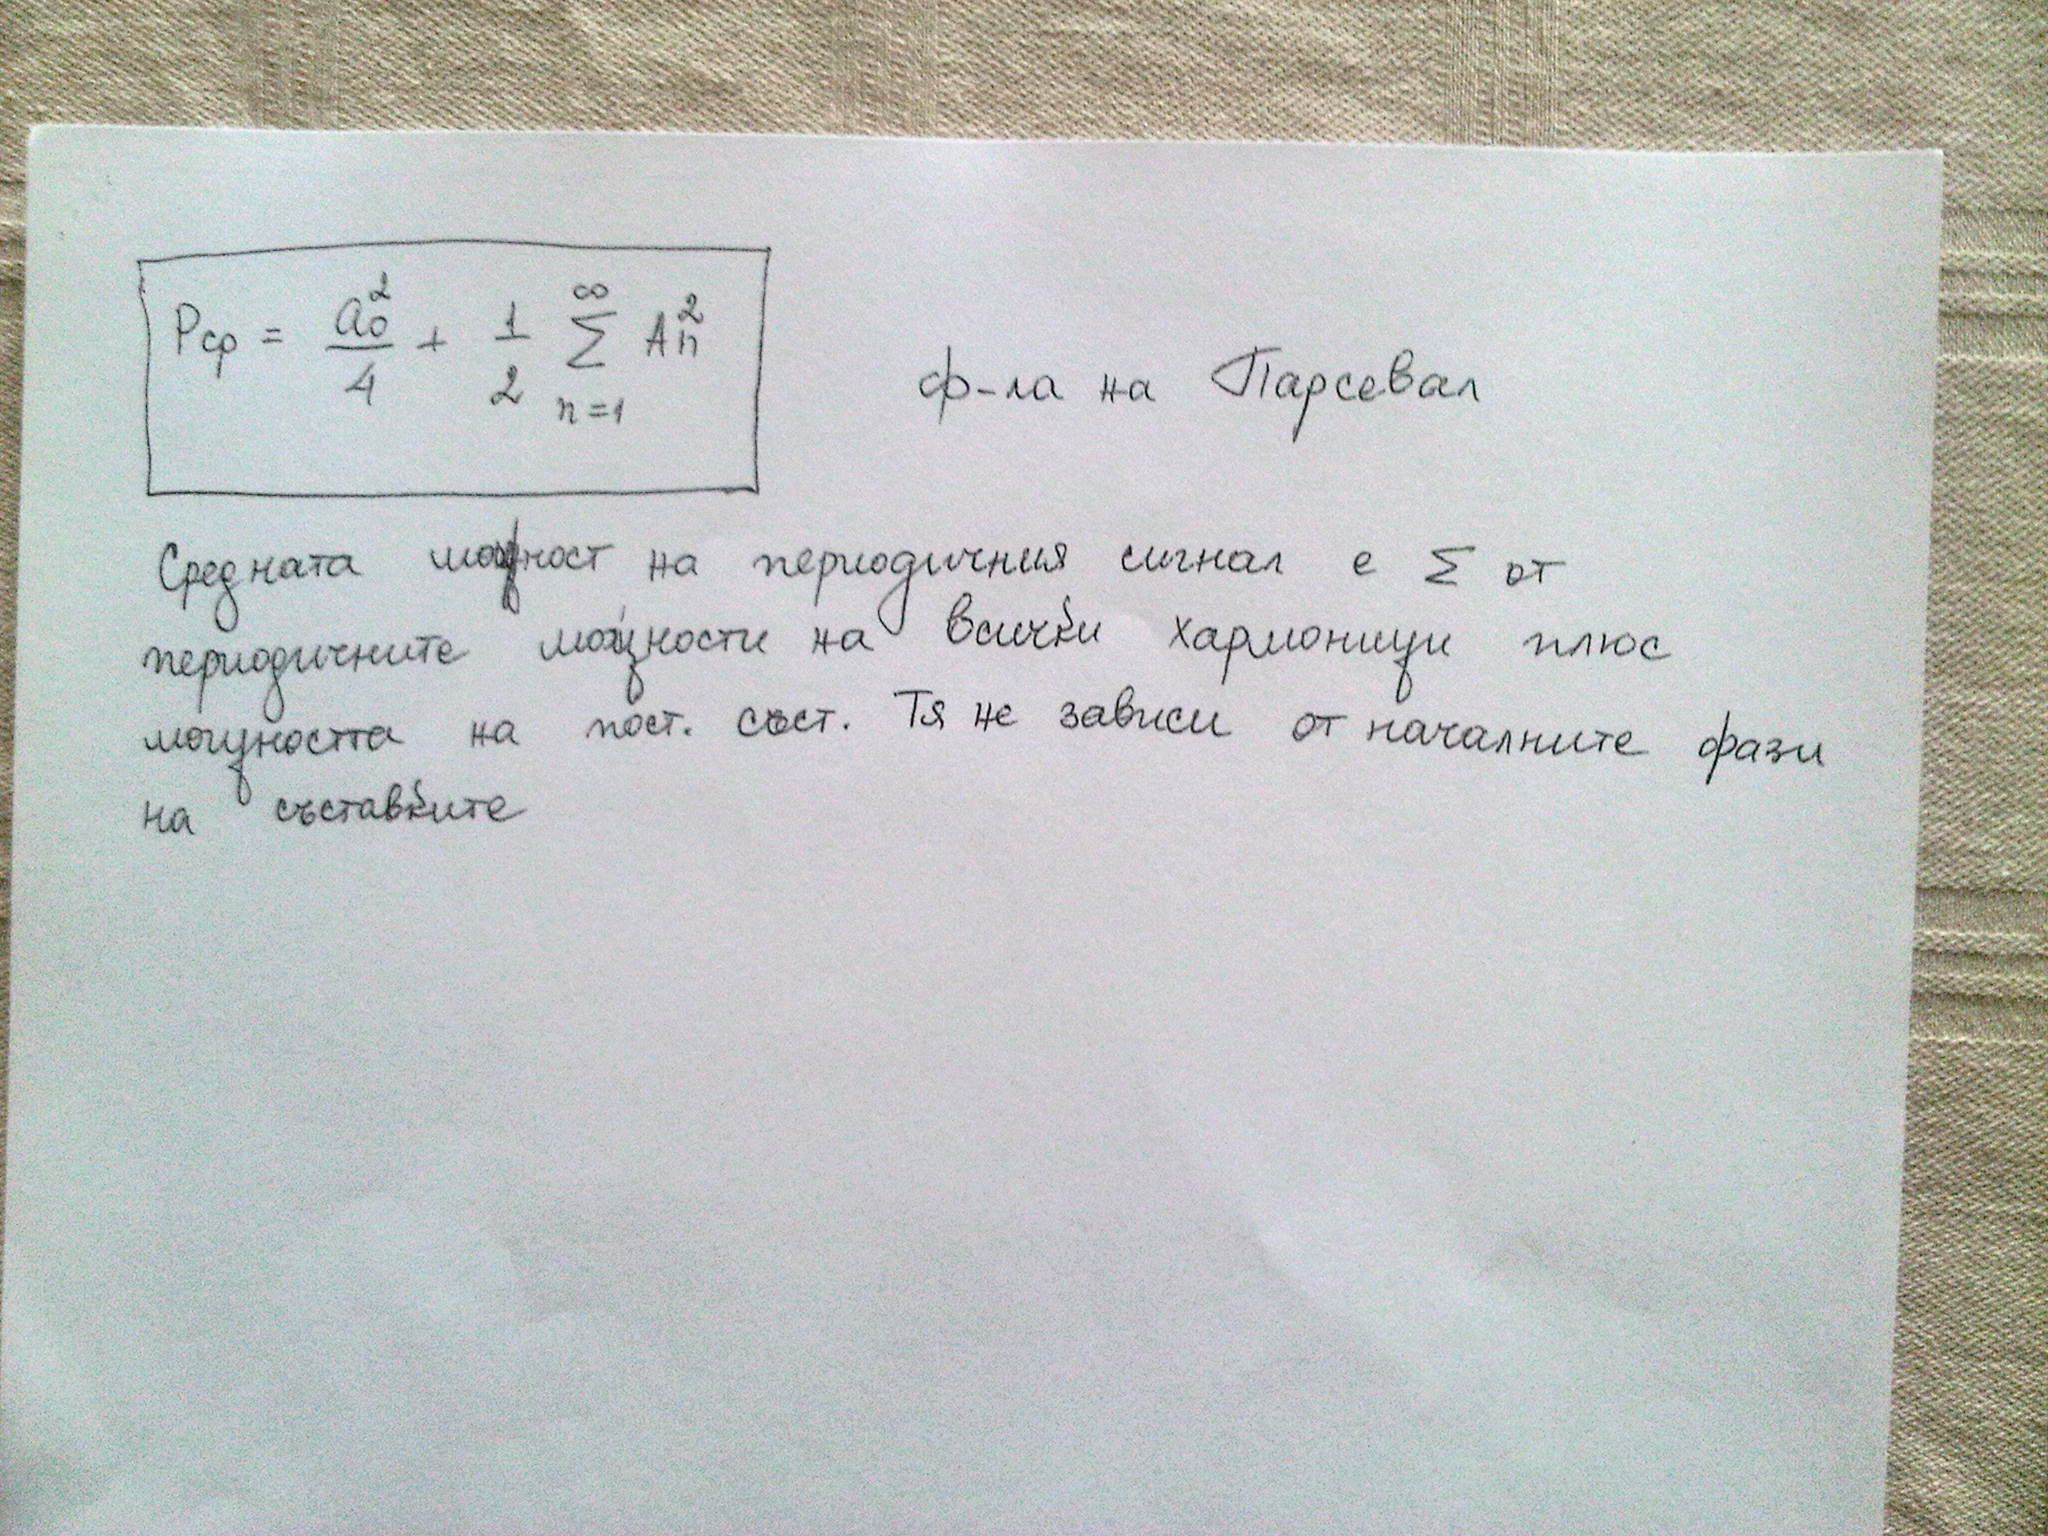 Pср = a₀²/4 + 1/2 ∞∑n=1 Aₙ²
ф-ла на Парсевал
Средната мощност на периодичния сигнал е Σ от
периодичните мощности на всички хармоници плюс
мощността на пост. съст. Тя не зависи от началните фази
на съставките